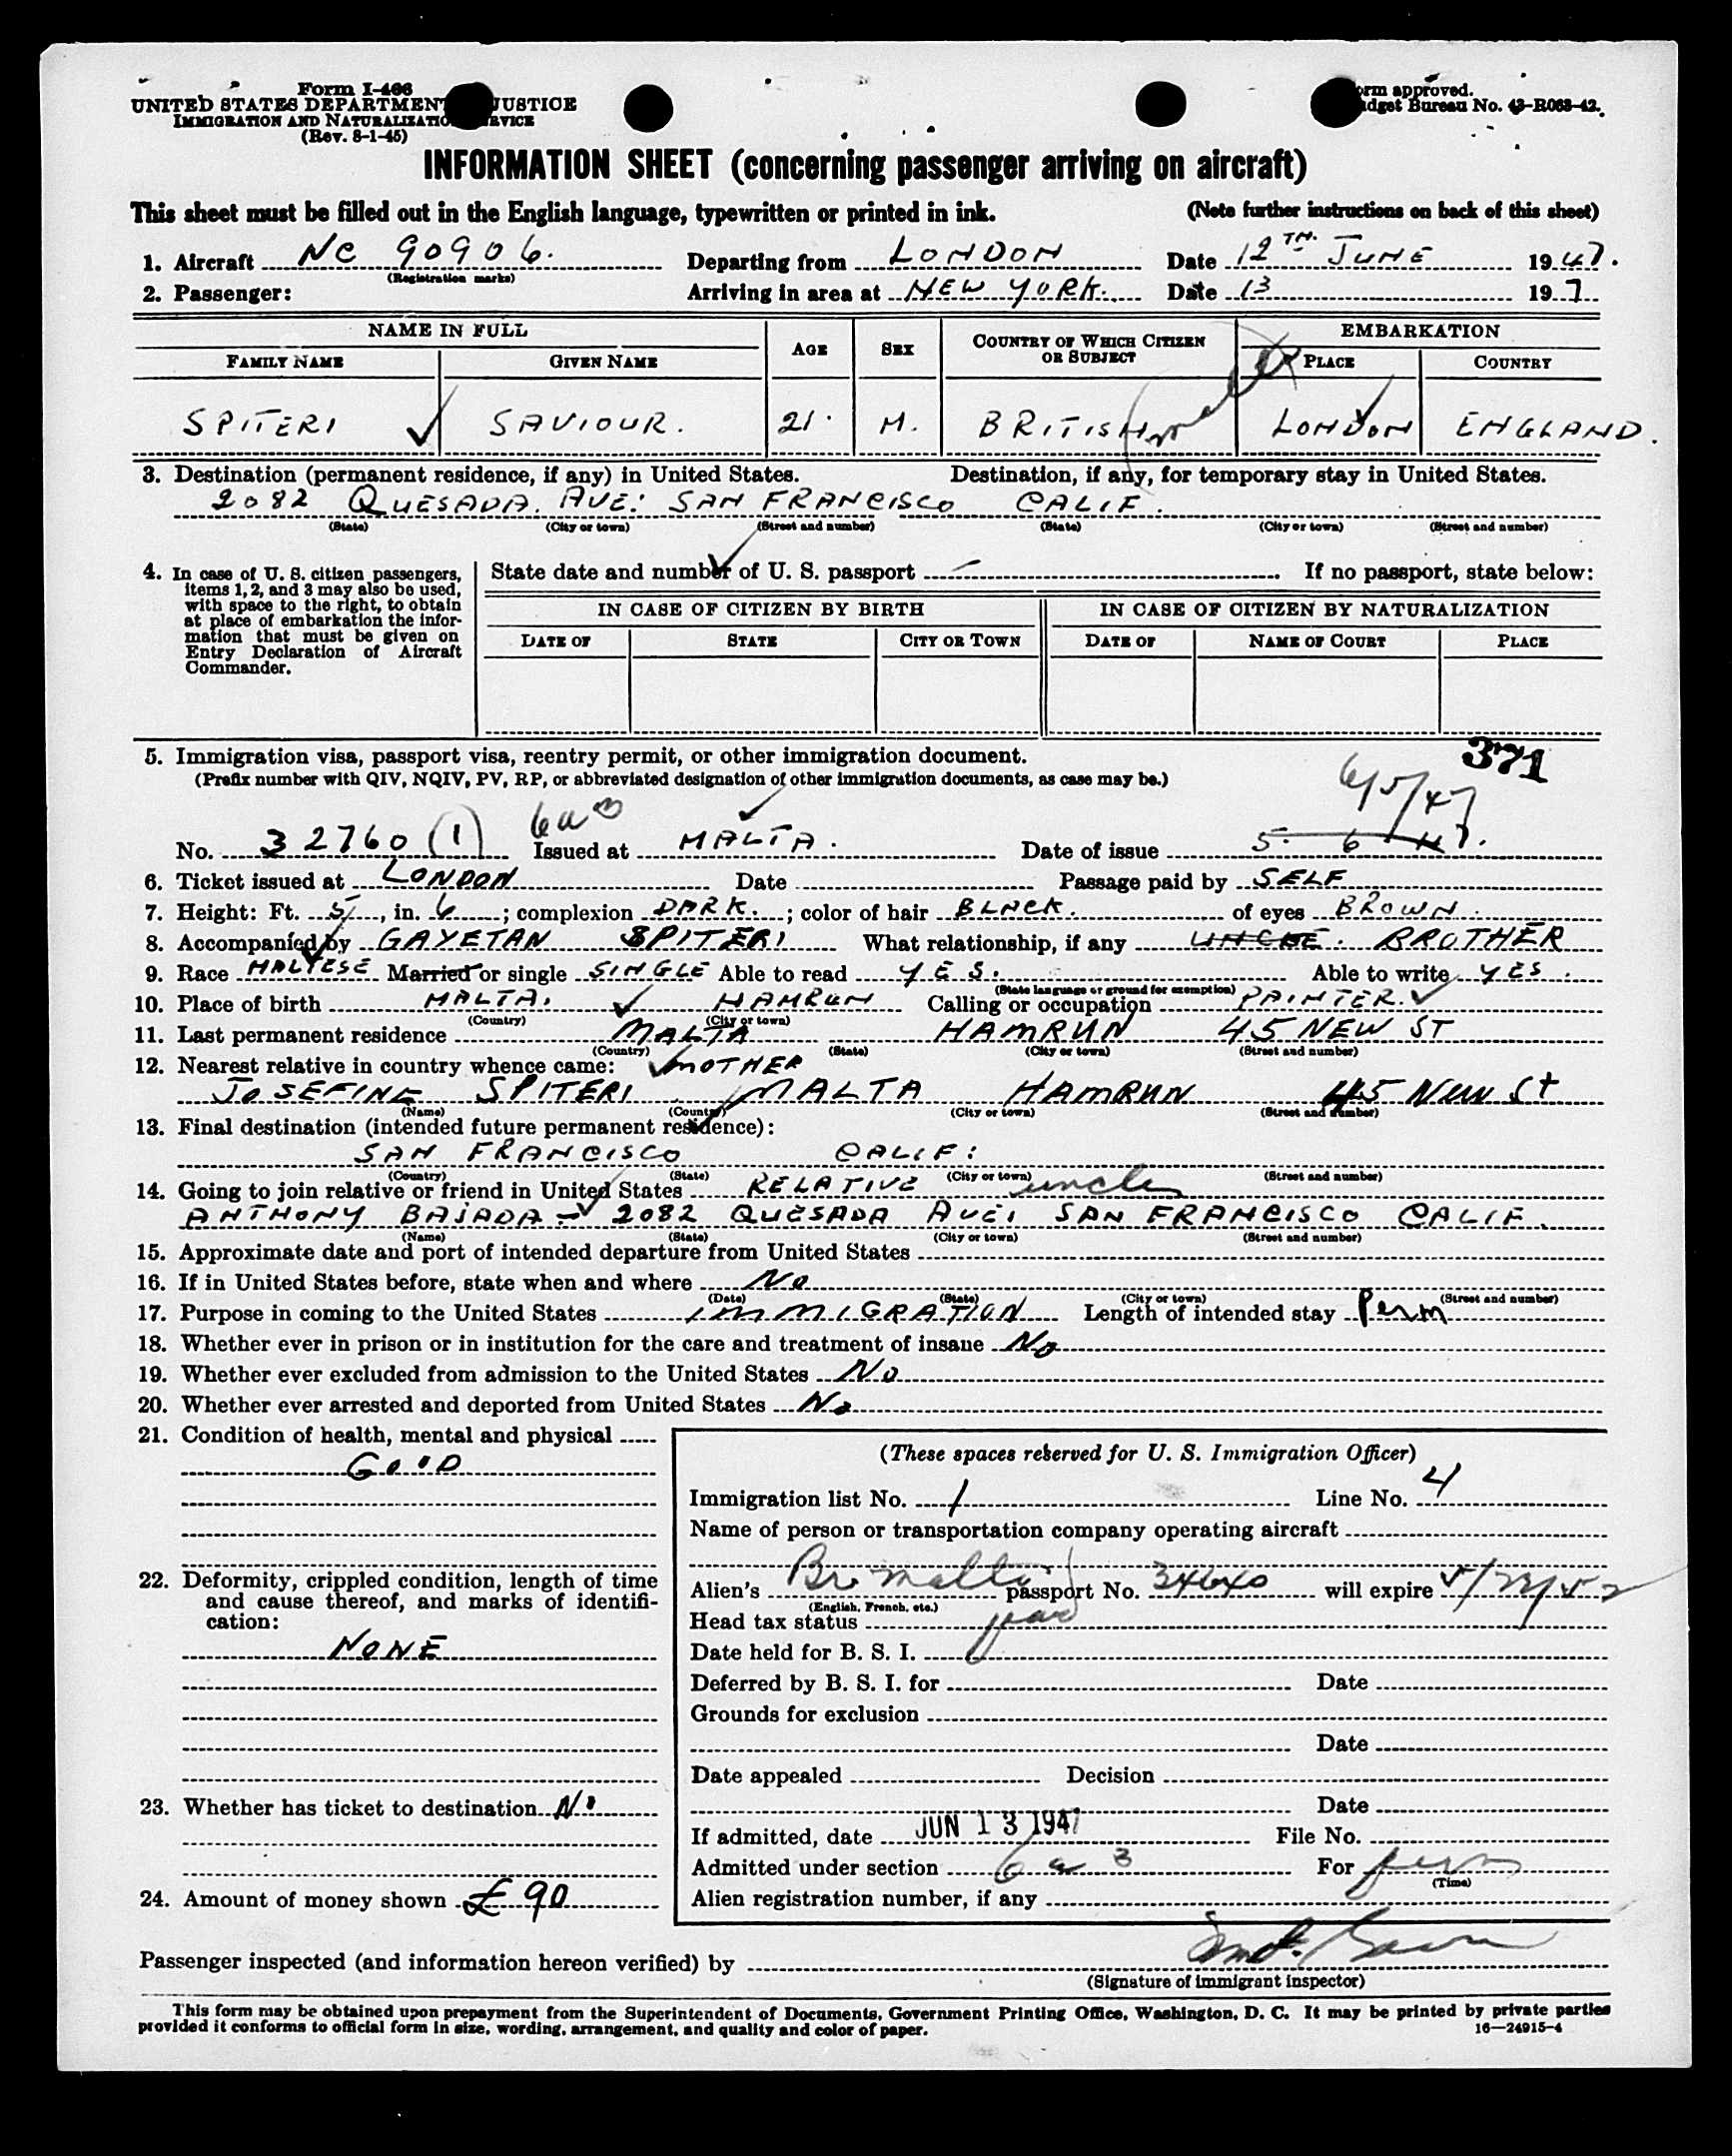 Form I-466
UNITED STATES DEPARTMENT JUSTICE
IMMIGRATION AND NATURALIZATION SERVICE
(Rev. 8-1-45)
orm approved.
udget Bureau No. 43-R063-42.
INFORMATION SHEET (concerning passenger arriving on aircraft)
This sheet must be filled out in the English language, typewritten or printed in ink. (Note further instructions on back of this sheet)
1. Aircraft NC 90906. Departing from LONDON Date 12TH. JUNE 1947.
(Registration marks)
2. Passenger: Arriving in area at NEW YORK. Date 13 197
NAME IN FULL AGE SEX COUNTRY OF WHICH CITIZEN OR SUBJECT EMBARKATION
FAMILY NAME GIVEN NAME PLACE COUNTRY
SPITERI SAVIOUR. 21. M. BRITISH LONDON ENGLAND.
3. Destination (permanent residence, if any) in United States. Destination, if any, for temporary stay in United States.
2082 QUESADA. AVE: SAN FRANCISCO CALIF.
(State) (City or town) (Street and number) (State) (City or town) (Street and number)
4. In case of U. S. citizen passengers, items 1, 2, and 3 may also be used, with space to the right, to obtain at place of embarkation the information that must be given on Entry Declaration of Aircraft Commander.
State date and number of U. S. passport If no passport, state below:
IN CASE OF CITIZEN BY BIRTH IN CASE OF CITIZEN BY NATURALIZATION
DATE OF STATE CITY OR TOWN DATE OF NAME OF COURT PLACE
371
5. Immigration visa, passport visa, reentry permit, or other immigration document.
(Prefix number with QIV, NQIV, PV, RP, or abbreviated designation of other immigration documents, as case may be.)
6a3 6/5/47
No. 32760 (1) Issued at MALTA. Date of issue 5. 6 47.
6. Ticket issued at LONDON Date Passage paid by SELF
7. Height: Ft. 5, in. 6; complexion DARK.; color of hair BLACK. of eyes BROWN.
8. Accompanied by GAYETAN SPITERI What relationship, if any UNCLE. BROTHER
9. Race MALTESE Married or single SINGLE Able to read YES. Able to write YES.
(State language or ground for exemption)
10. Place of birth MALTA. HAMRUN Calling or occupation PAINTER.
(Country) (City or town)
11. Last permanent residence MALTA HAMRUN 45 NEW ST
(Country) (State) (City or town) (Street and number)
12. Nearest relative in country whence came: MOTHER
JOSEFINE SPITERI MALTA HAMRUN 45 New St
(Name) (Country) (City or town) (Street and number)
13. Final destination (intended future permanent residence):
SAN FRANCISCO CALIF:
(Country) (State) (City or town) (Street and number)
14. Going to join relative or friend in United States RELATIVE uncle
ANTHONY BAJADA - 2082 QUESADA AVE: SAN FRANCISCO CALIF.
(Name) (State) (City or town) (Street and number)
15. Approximate date and port of intended departure from United States
16. If in United States before, state when and where No
(Date) (State) (City or town) (Street and number)
17. Purpose in coming to the United States IMMIGRATION Length of intended stay Perm
18. Whether ever in prison or in institution for the care and treatment of insane No
19. Whether ever excluded from admission to the United States No
20. Whether ever arrested and deported from United States No
21. Condition of health, mental and physical
GOOD
22. Deformity, crippled condition, length of time and cause thereof, and marks of identification:
NONE
23. Whether has ticket to destination No
24. Amount of money shown £90
(These spaces reserved for U. S. Immigration Officer)
Immigration list No. 1 Line No. 4
Name of person or transportation company operating aircraft
Alien's Br Malta passport No. 34640 will expire 5/22/52
(English, French, etc.)
Head tax status
Date held for B. S. I.
Deferred by B. S. I. for Date
Grounds for exclusion
Date
Date appealed Decision
Date
If admitted, date JUN 13 1947 File No.
Admitted under section 6a3 For perm
(Time)
Alien registration number, if any
Passenger inspected (and information hereon verified) by
(Signature of immigrant inspector)
This form may be obtained upon prepayment from the Superintendent of Documents, Government Printing Office, Washington, D. C. It may be printed by private parties
provided it conforms to official form in size, wording, arrangement, and quality and color of paper. 16—24915-4